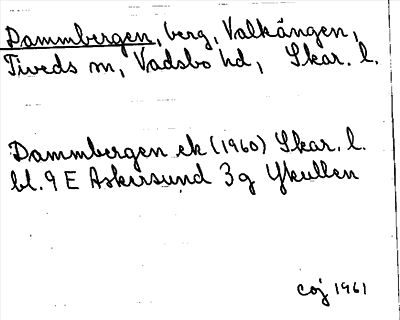 Dammbergen, berg, Valkängen,
Tiveds sn, Vadsbo hd, Skar. l.
Dammbergen ek (1960) Skar. l.
bl. 9 E Askersund 3g Ykullen
coj 1961